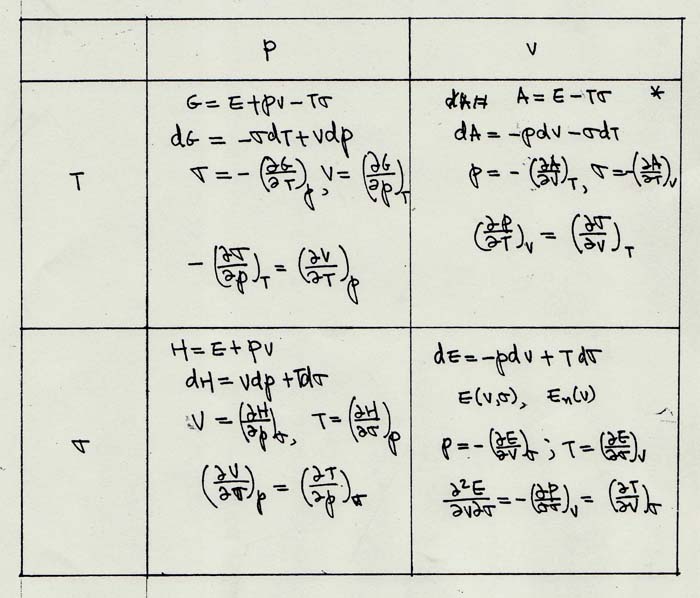 p V
T
G = E + pV − Tσ
dG = −σdT + Vdp
σ = −(∂G/∂T)_p, V = (∂G/∂p)_T
−(∂σ/∂p)_T = (∂V/∂T)_p
A = E − Tσ *
dA = −pdV − σdT
p = −(∂A/∂V)_T, σ = −(∂A/∂T)_V
(∂p/∂T)_V = (∂σ/∂V)_T
σ
H = E + pV
dH = Vdp + Tdσ
V = (∂H/∂p)_σ, T = (∂H/∂σ)_p
(∂V/∂σ)_p = (∂T/∂p)_σ
dE = −pdV + Tdσ
E(V,σ), E_n(V)
p = −(∂E/∂V)_σ ; T = (∂E/∂σ)_V
∂²E/∂V∂σ = −(∂p/∂σ)_V = (∂T/∂V)_σ